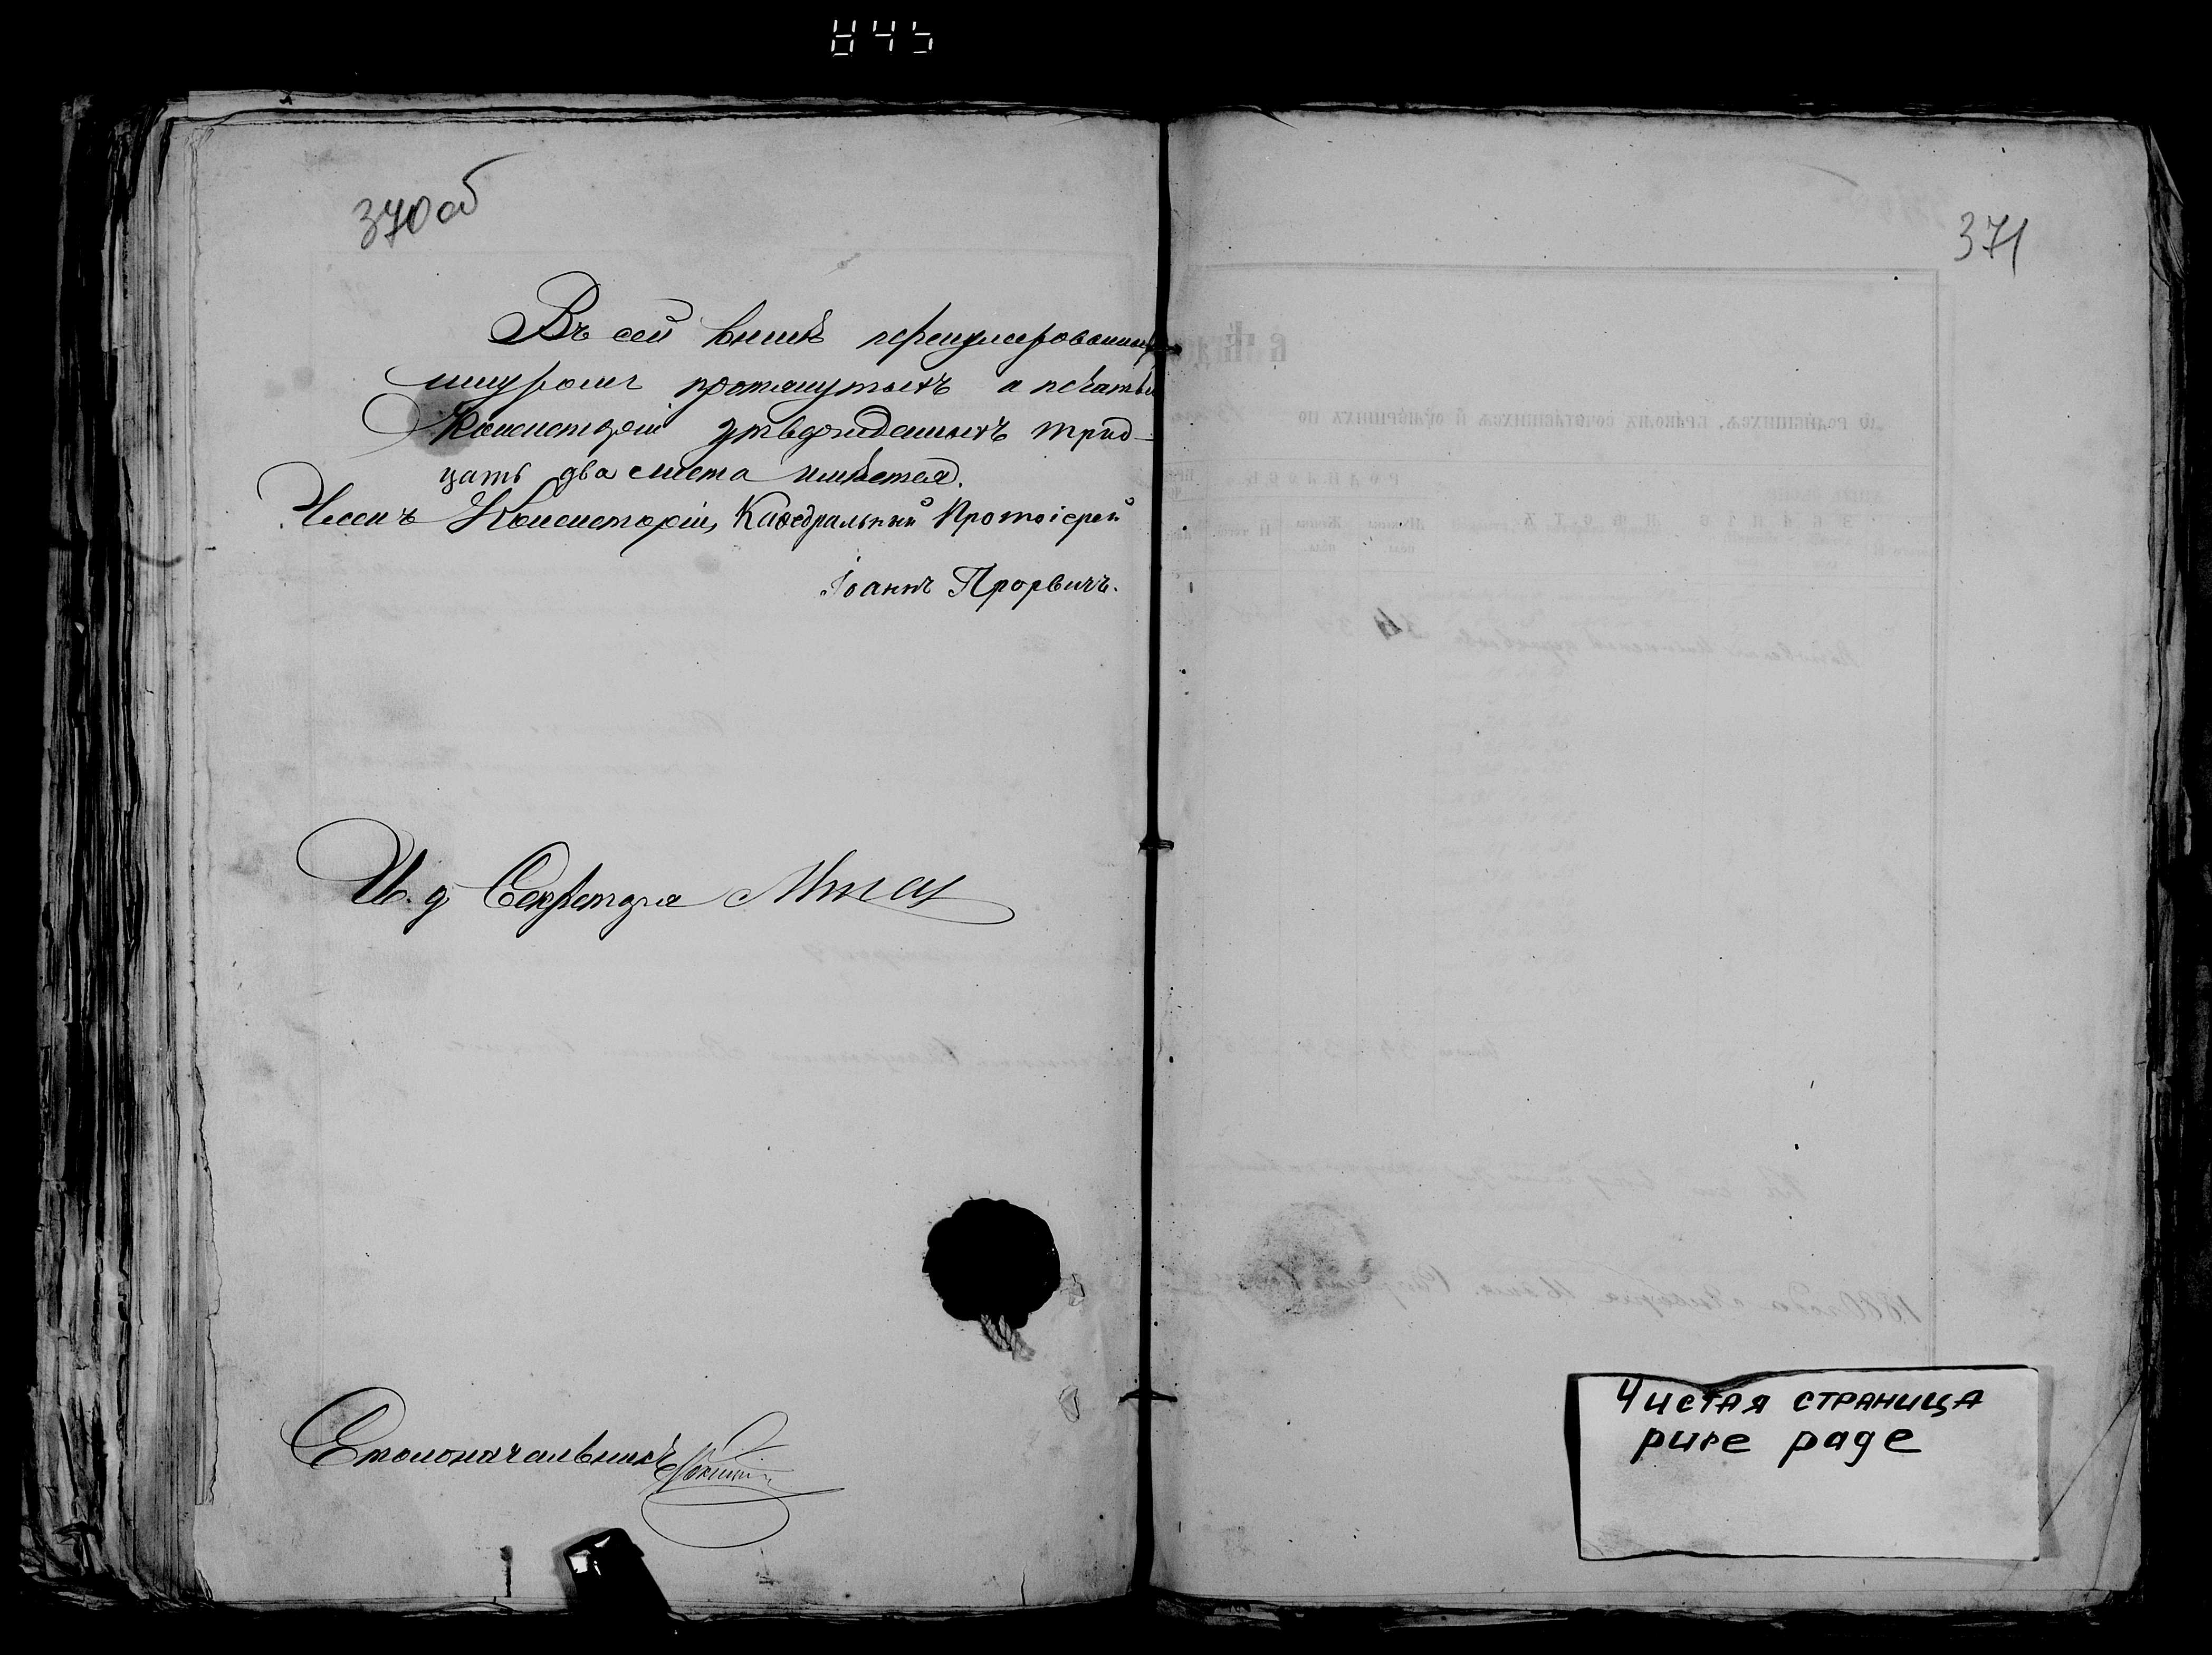 845
370 об
Въ сей книгѣ пронумерованныхъ
шнуромъ протянутыхъ и печатью
Консисторіи утвержденныхъ трид-
цать два листа имѣется.
Членъ Консисторіи, Каѳедральный Протоіерей
Іоаннъ Прорвичъ.
И. д. Секретаря
Столоначальникъ
371
Чистая страница
pure page